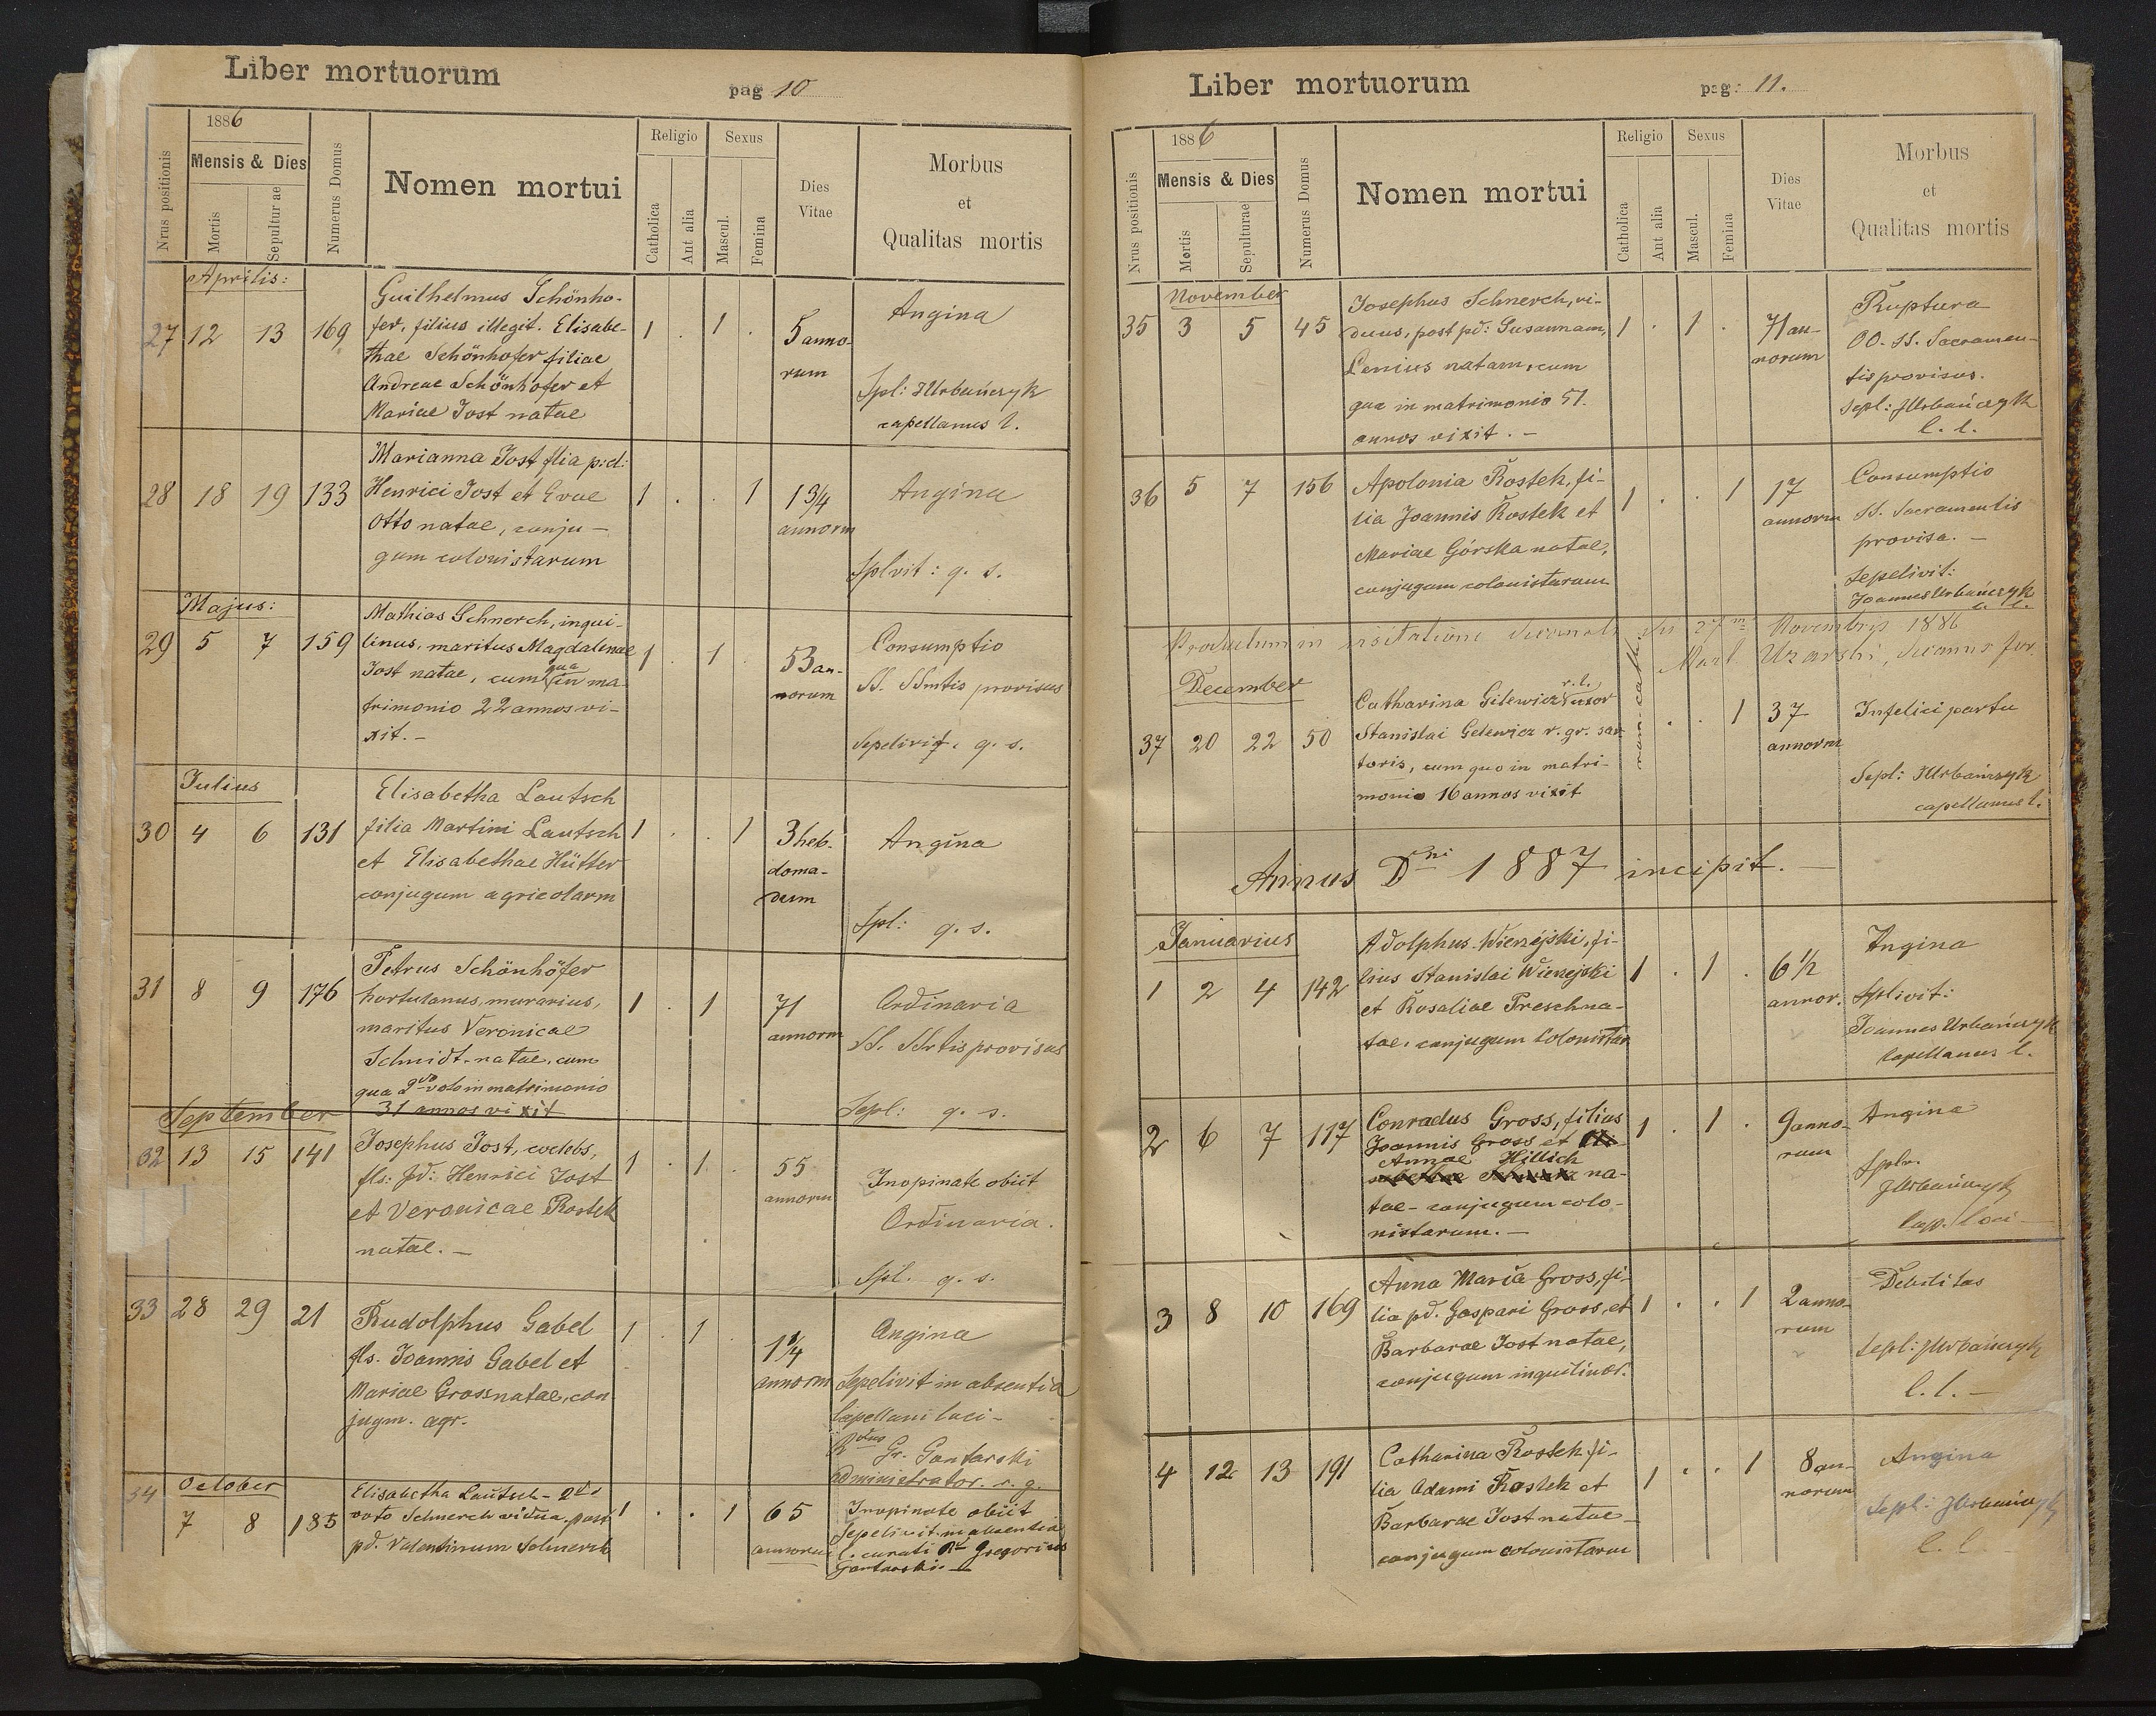 Liber mortuorum
pag 10
1886
Mensis & Dies
Nrus positionis
Mortis
Sepultur ae
Numerus Domus
Nomen mortui
Religio
Catholica
Aut alia
Sexus
Mascul.
Femina
Dies
Vitae
Morbus
et
Qualitas mortis
Aprilis:
27 12 13 169
Guilhelmus Schönho-
fer, filius illegit. Elisabe-
thae Schönhofer filiae
Andreae Schönhofer et
Mariae Jost natae
1 . 1 .
5 anno-
rum
Angina
Spl: JUrbańczyk
capellanus l.
28 18 19 133
Marianna Jost flia p:d:
Henrici Jost et Evae
Otto natae, conju-
gum colonistarum
1 . . 1
1 3/4
annorm
Angina
Splvit: q. s.
Majus:
29 5 7 159
Mathias Schnerch, inqui-
linus, maritus Magdalenae
Jost natae, cum qua in ma-
trimonio 22 annos vi-
xit. -
1 . 1 .
53 an-
norum
Consumptio
SS. SSmtis provisus
Sepelivit. q. s.
Julius
30 4 6 131
Elisabetha Lautsch
filia Martini Lautsch
et Elisabethae Hütter
conjugum agricolarm
1 . . 1
3 heb-
doma-
dum
Angina
Spl: q. s.
31 8 9 176
Petrus Schönhöfer
hortulanus, murarius,
maritus Veronicae
Schmidt natae, cum
qua 2do voto in matrimonio
31 annos vixit
1 . 1
71
annorm
Ordinaria
SS. SSrtis provisus
Sepl: q. s.
September
32 13 15 141
Josephus Jost, coelebs,
fls: pd: Henrici Jost
et Veronicae Rostek
natae. -
1 . 1 .
55
annorm
Inopinate obiit
Ordinaria.
Spl. q. s.
33 28 29 21
Rudolphus Gabel
fls. Joannis Gabel et
Mariae Gross natae, con
jugm. agr.
1 . 1 .
1 1/4
annorm
Angina
Sepelivit in absentia
Capellani loci -
Rdus Gr. Gontarski
administrator. r. g.
October
34 7 8 185
Elisabetha Lautsch - 2do
voto Schnerch vidua, post
pd. Valentinum Schnerch
1 . . 1
65
annorum
Inopinate obiit
Sepelivit in absentia
l. curati Rd Gregorius
Gontarski. -
Liber mortuorum
pag: 11.
1886
Mensis & Dies
Nrus positionis
Mortis
Sepulturae
Numerus Domus
Nomen mortui
Religio
Catholica
Aut alia
Sexus
Mascul.
Femina
Dies
Vitae
Morbus
et
Qualitas mortis
November
35 3 5 45
Josephus Schnerch, vi-
duus, post pd: Susannam,
Lenius natam, cum
qua in matrimonio 51.
annos vixit. -
1 . 1 .
71 an-
norum
Ruptura
OO. SS. Sacramen-
tis provisus.
Sepl: JUrbańczyk
C. l.
36 5 7 156
Apolonia Rostek, fi-
lia Joannis Rostek et
Mariae Górska natae,
conjugum colonistarum
1 . . 1
17
annorm
Consumptio
SS. Sacramentis
provisa. -
Sepelivit:
Joannes Urbańczyk
c. l.
Productum in visitatione decanali die 27m Novembris 1886
December
37 20 22 50
Catharina Gilewicz r. l. uxor
Stanislai Gelewicz r. gr. sar-
toris, cum quo in matri-
monio 16 annos vixit
. . 1
37
annorm
Infelici partu
Sepl: JUrbańczyk
capellanus l.
Annus Dni 1887 incipit. -
Januarius
1 2 4 142
Adolphus Wierzejski, fi-
lius Stanislai Wierzejski
et Rosaliae Presch na-
tae, conjugum Colonistar
1 . 1 .
6 1/2
annor.
Angina
Splivit:
Joannes Urbańczyk
Capellanus l.
2 6 7 117
Conradus Gross, filius
Joannis Gross et
Annae Hillich
na-
tae - conjugum colo-
nistarum. -
1 . 1 .
9 anno-
rum
Angina
Splv.
JUrbańczyk
Cap. loci -
3 8 10 169
Anna Maria Gross, fi-
lia pd. Gaspari Gross, et
Barbarae Jost natae,
conjugum inquilinor.
1 . . 1
2 anno-
rum
Debilitas
Sepl: JUrbańczyk
C. l. -
4 12 13 191
Catharina Rostek fi-
lia Adami Rostek et
Barbarae Jost natae -
conjugum colonistarm
1 . . 1
8 an-
norum
Angina
Sepl: JUrbańczyk
C. l. -